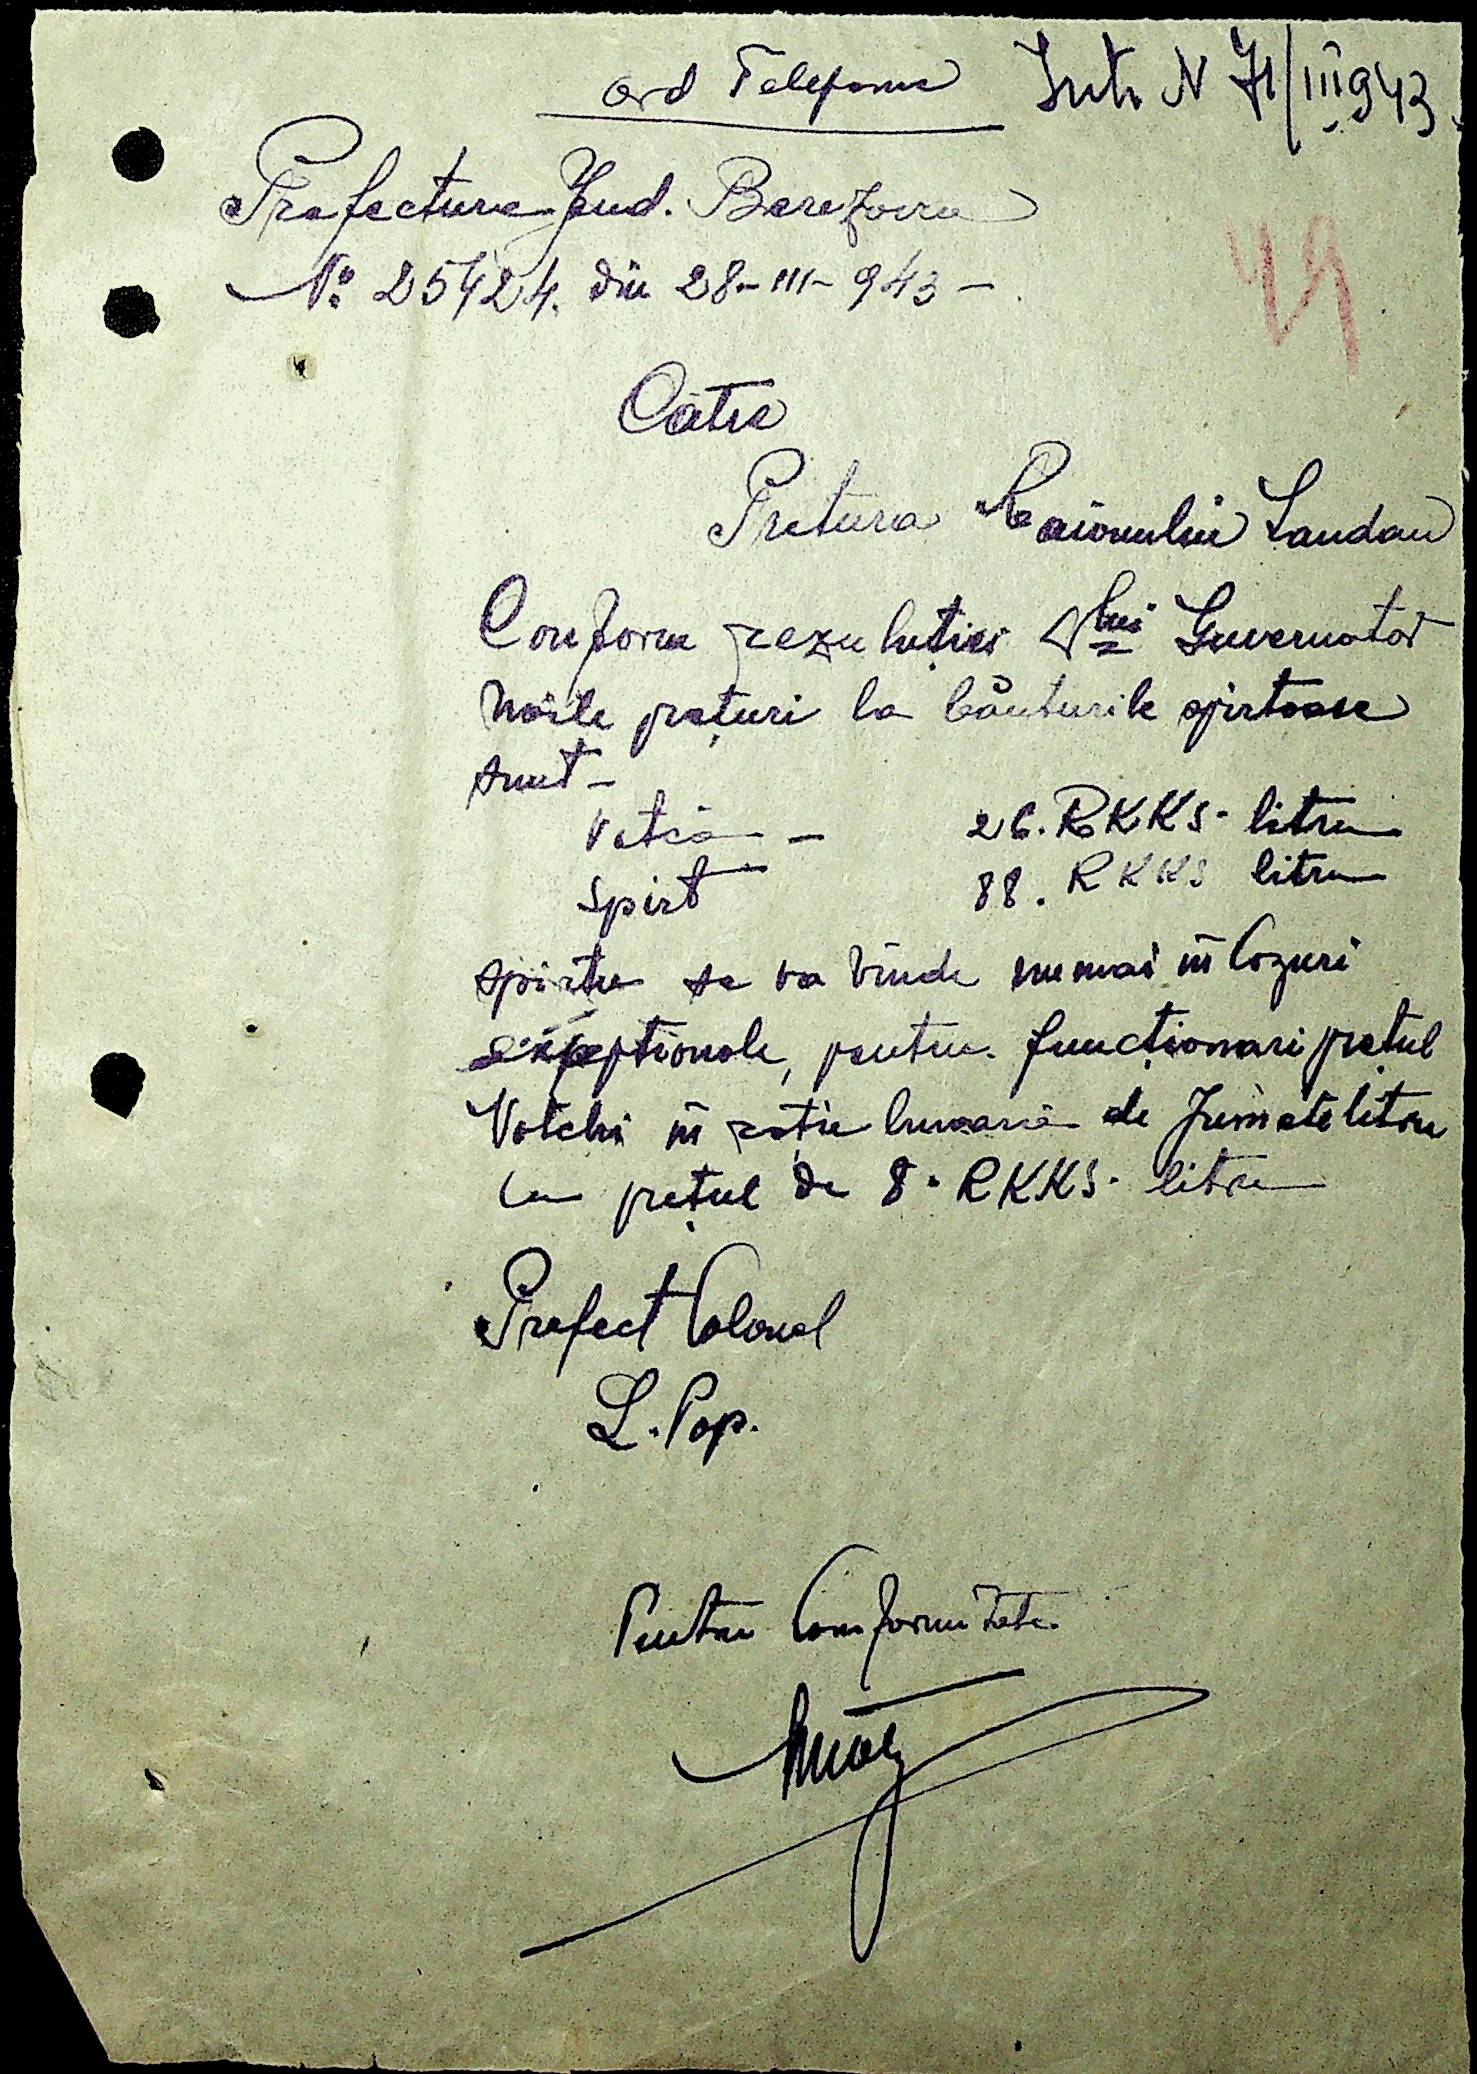 Ord Telefonic Intr N 71/III 943.
Prefectura Jud. Berezovca
No 25424. din 28-III-943-
49
Cātre
Pretura Raionului Landau
Conform rezuluției Dlui Guvernator
Noile prețuri la băuturile spirtoase
sunt -
Votcă - 26. RKKS- litru
Spirt 88. RKKS litru
spirtu se va vinde numai in Cazuri
exceptionale, pentru funcționari prețul
Votchi in rație lunară de Jumate litru
cu prețul de 8. RKKS. litru
Prefect Colonel
L. Pop.
Pentru Conformitate